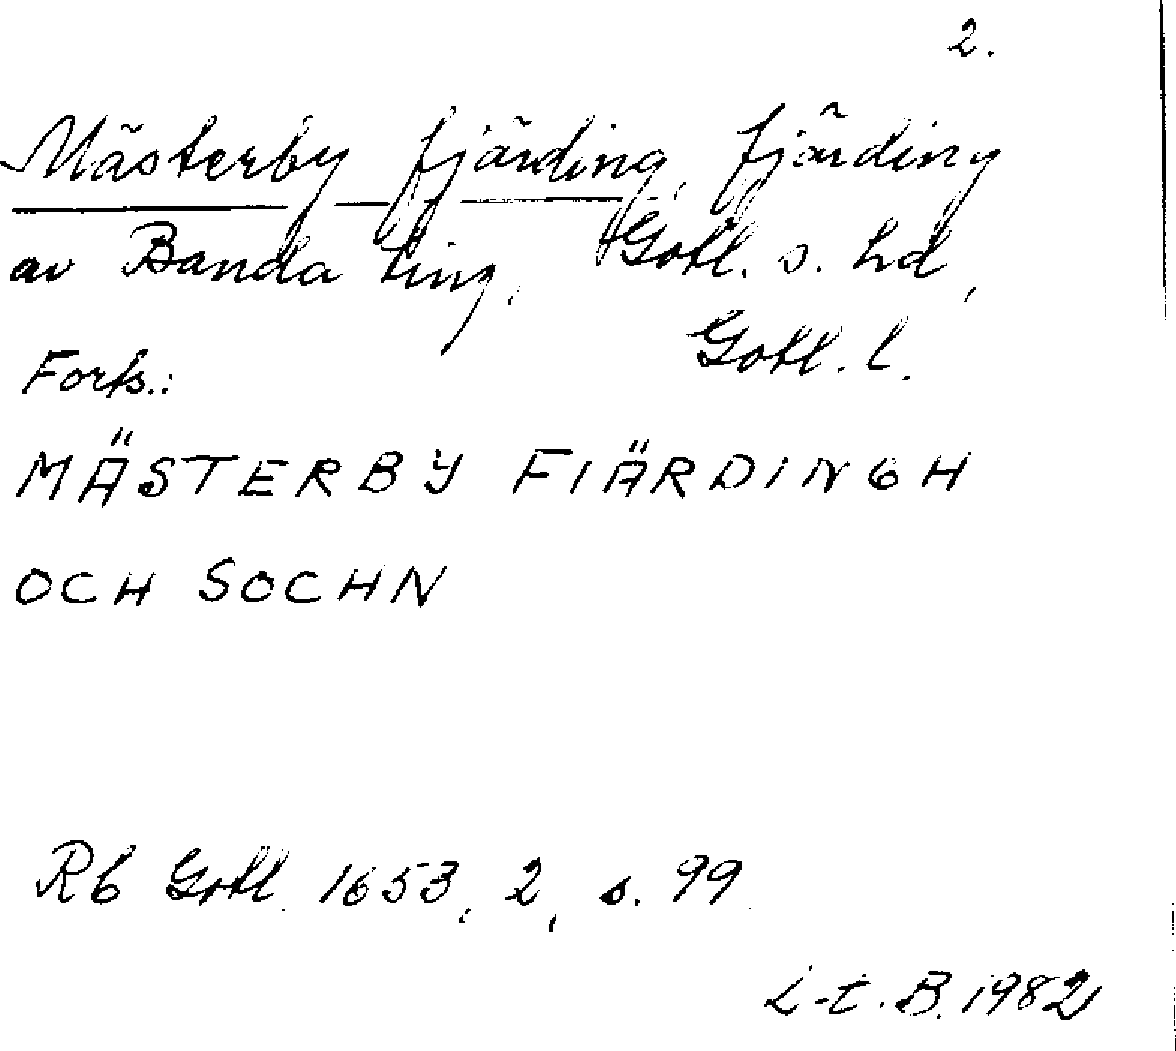 2.
Mästerby fjärding, fjärding
av Banda ting, Gotl. s. hd,
Gotl. l.
Forts.:
MÄSTERBY FIÄRDINGH
OCH SOCHN
Rb Gotl. 1653, 2, s. 99.
L-t. B. 1982